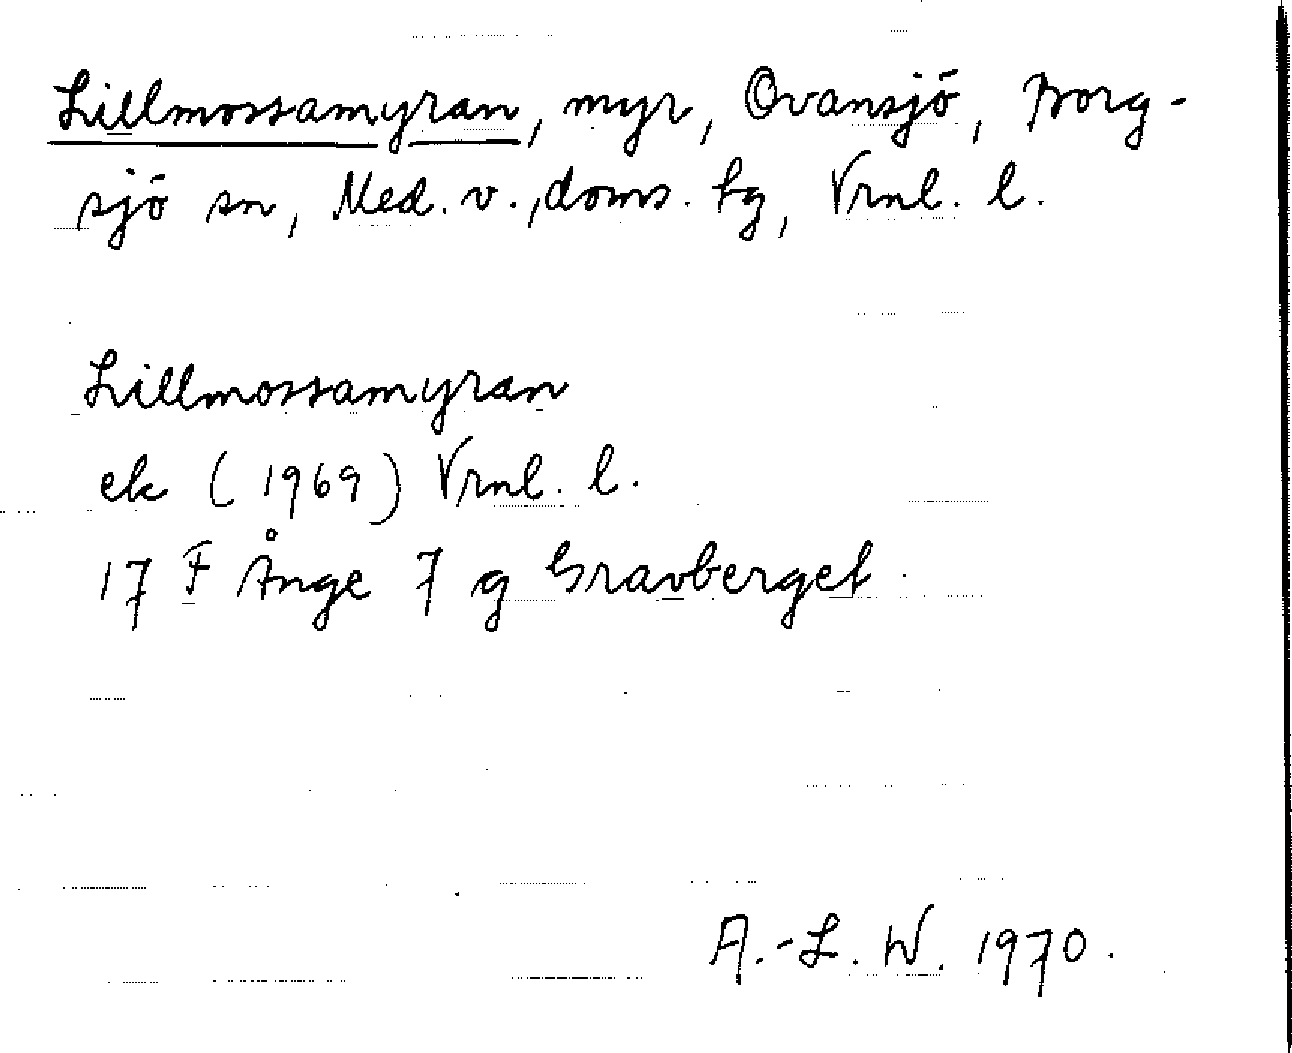 Lillmossamyran, myr, Ovansjö, Borg-
sjö sn, Med. v., doms. tg, Vrnl. l.
Lillmossamyran
ek (1969) Vrnl. l.
17 F Ånge 7 g Gravberget.
A.-L. W. 1970.